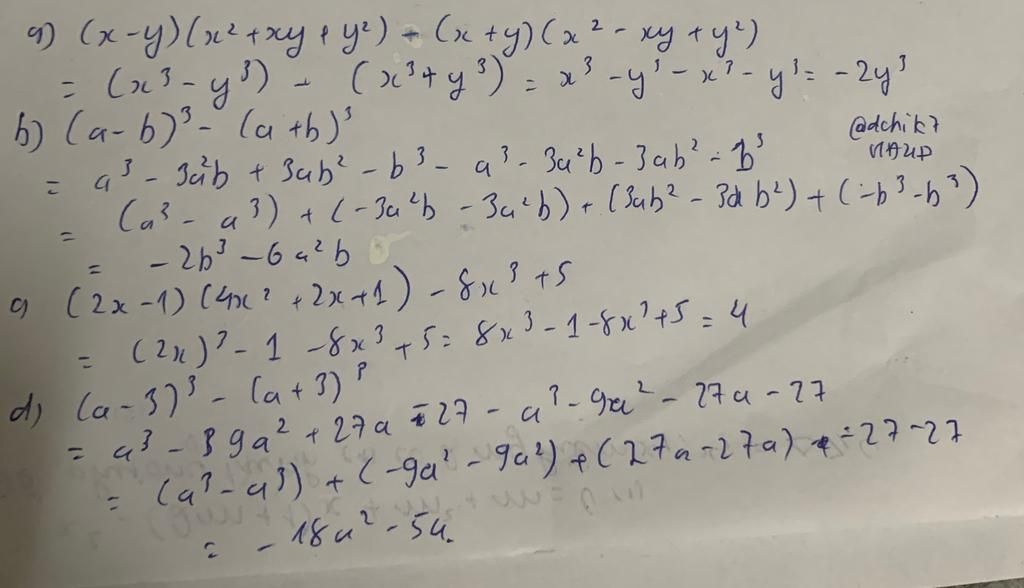 a) (x-y)(x²+xy+y²) - (x+y)(x²-xy+y²)
= (x³-y³) - (x³+y³) = x³-y³-x³-y³ = -2y³
b) (a-b)³ - (a+b)³
@dchik7
= a³ - 3a²b + 3ab² - b³ - a³ - 3a²b - 3ab² - b³
= (a³-a³) + (-3a²b - 3a²b) + (3ab² - 3ab²) + (-b³-b³)
= -2b³ - 6a²b
c) (2x-1)(4x²+2x+1) - 8x³+5
= (2x)³ - 1 - 8x³ + 5 = 8x³ - 1 - 8x³ + 5 = 4
d) (a-3)³ - (a+3)³
= a³ - 9a² + 27a - 27 - a³ - 9a² - 27a - 27
= (a³-a³) + (-9a²-9a²) + (27a-27a) - 27-27
= -18a² - 54.